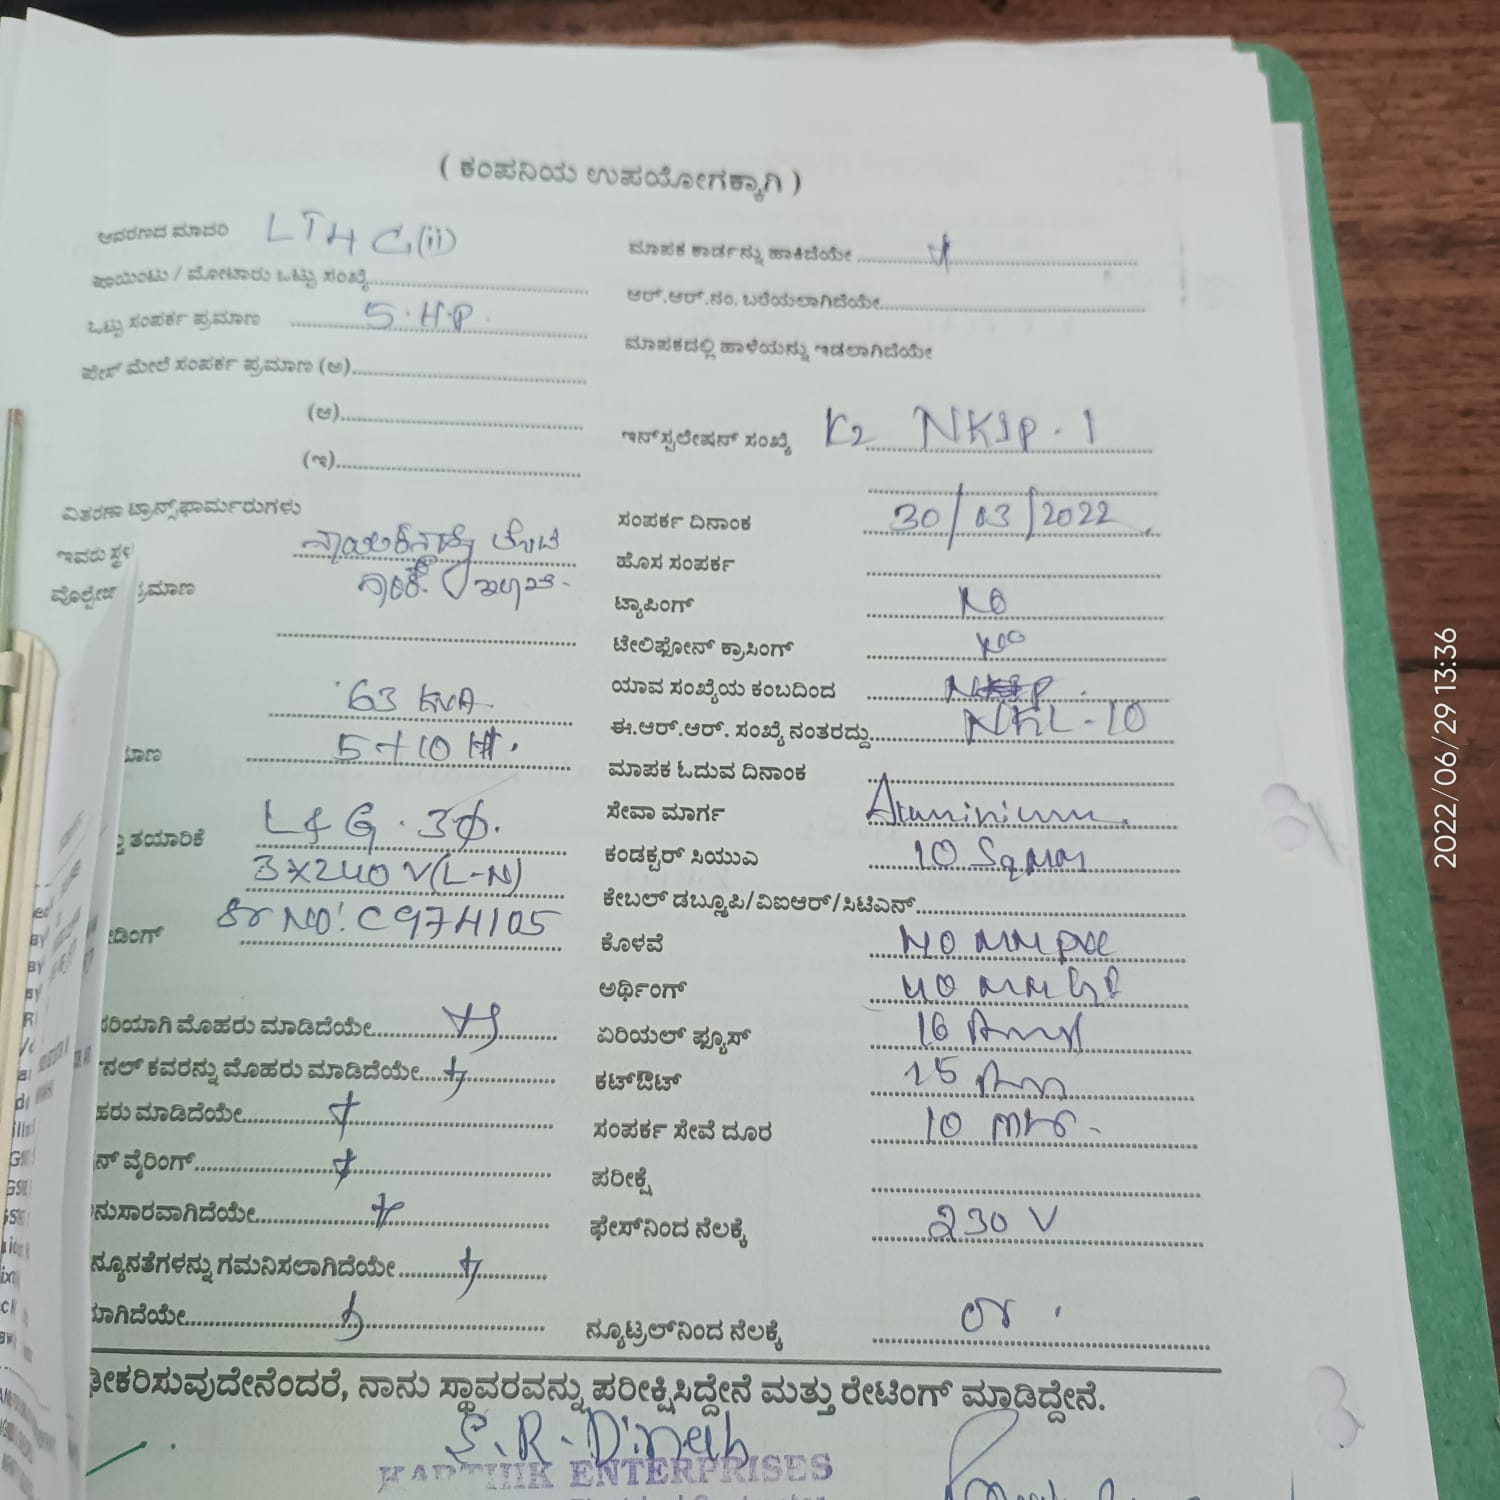 ( ಕಂಪನಿಯ ಉಪಯೋಗಕ್ಕಾಗಿ )
ಆವರಣದ ಮಾದರಿ LT4 C(ii)
ಪಾಯಿಂಟು / ಮೋಟಾರು ಒಟ್ಟು ಸಂಖ್ಯೆ
ಒಟ್ಟು ಸಂಪರ್ಕ ಪ್ರಮಾಣ 5.H.P.
ಫೇಸ್ ಮೇಲೆ ಸಂಪರ್ಕ ಪ್ರಮಾಣ (ಅ)
(ಆ)
(ಇ)
ವಿತರಣಾ ಟ್ರಾನ್ಸ್‌ಫಾರ್ಮರುಗಳು
ಇವರು ಸ್ಥಳ
ವೊಲ್ಟೇಜ್ ಪ್ರಮಾಣ
63 KVA
ಮಾಣ 5+10 H.
ತು ತಯಾರಿಕೆ L&G. 3φ.
3x240 V(L-N)
ಡಿಂಗ್ Sr No: C974105
ರಿಯಾಗಿ ಮೊಹರು ಮಾಡಿದೆಯೇ
ನಲ್ ಕವರನ್ನು ಮೊಹರು ಮಾಡಿದೆಯೇ
ಹರು ಮಾಡಿದೆಯೇ
ನ್ ವೈರಿಂಗ್
ನುಸಾರವಾಗಿದೆಯೇ
ನ್ಯೂನತೆಗಳನ್ನು ಗಮನಿಸಲಾಗಿದೆಯೇ
ಮಾಗಿದೆಯೇ
ಮಾಪಕ ಕಾರ್ಡನ್ನು ಹಾಕಿದೆಯೇ
ಆರ್.ಆರ್.ನಂ. ಬರೆಯಲಾಗಿದೆಯೇ
ಮಾಪಕದಲ್ಲಿ ಹಾಳೆಯನ್ನು ಇಡಲಾಗಿದೆಯೇ
ಇನ್‌ಸ್ಟಲೇಷನ್ ಸಂಖ್ಯೆ K2 NKIP.1
ಸಂಪರ್ಕ ದಿನಾಂಕ 30/03/2022
ಹೊಸ ಸಂಪರ್ಕ
ಟ್ಯಾಪಿಂಗ್ NO
ಟೇಲಿಫೋನ್ ಕ್ರಾಸಿಂಗ್ NO
ಯಾವ ಸಂಖ್ಯೆಯ ಕಂಬದಿಂದ
ಈ.ಆರ್.ಆರ್. ಸಂಖ್ಯೆ ನಂತರದ್ದು NKL-10
ಮಾಪಕ ಓದುವ ದಿನಾಂಕ
ಸೇವಾ ಮಾರ್ಗ Aluminium
ಕಂಡಕ್ಟರ್ ಸಿಯುಎ 10 Sqmm
ಕೇಬಲ್ ಡಬ್ಲೂಪಿ/ವಿಐಆರ್/ಸಿಟಿಎನ್
ಕೊಳವೆ 40 MM PVC
ಅರ್ಥಿಂಗ್ 40 MM GI
ಏರಿಯಲ್ ಫ್ಯೂಸ್ 16 Amp
ಕಟ್‌ಔಟ್ 15 Amp
ಸಂಪರ್ಕ ಸೇವೆ ದೂರ 10 mtr.
ಪರೀಕ್ಷೆ
ಫೇಸ್‌ನಿಂದ ನೆಲಕ್ಕೆ 230 V
ನ್ಯೂಟ್ರಲ್‌ನಿಂದ ನೆಲಕ್ಕೆ
ೀಕರಿಸುವುದೇನೆಂದರೆ, ನಾನು ಸ್ಥಾವರವನ್ನು ಪರೀಕ್ಷಿಸಿದ್ದೇನೆ ಮತ್ತು ರೇಟಿಂಗ್ ಮಾಡಿದ್ದೇನೆ.
S.R. Dinesh
KARTHIK ENTERPRISES
2022/06/29 13:36